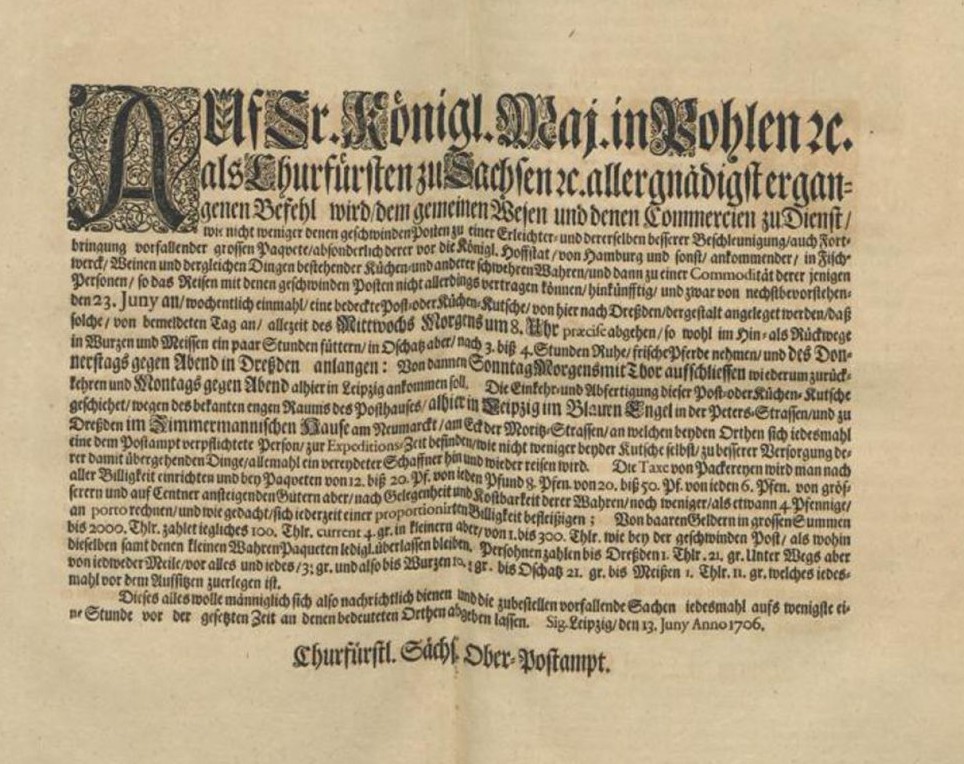 AUf Sr. Königl. Maj. in Pohlen ꝛc.
als Churfürsten zu Sachsen ꝛc. allergnädigst ergan-
genen Befehl wird/dem gemeinen Wesen und denen Commercien zu Dienst/
wie nicht weniger denen geschwinden Posten zu einer Erleichter- und dererselben besserer Beschleunigung/auch Fort-
bringung vorfallender grossen Paqvete/absonderlich derer vor die Königl. Hoffstat/von Hamburg und sonst/ankommender/in Fisch-
werck/Weinen und dergleichen Dingen bestehender Küchen-und anderer schwehren Wahren/und dann zu einer Commodität derer jenigen
Personen/ so das Reisen mit denen geschwinden Posten nicht allerdings vertragen können/hinkünfftig/ und zwar von nechstbevorstehen-
den 23. Juny an/wochentlich einmahl/eine bedeckte Post-oder Küchen-Kutsche/von hier nach Dreßden/dergestalt angeleget werden/daß
solche/ von bemeldeten Tag an/ allezeit des Mittwochs Morgens um 8. Uhr præcise abgehen/so wohl im Hin-als Rückwege
in Wurzen und Meissen ein paar Stunden füttern/in Oschatz aber/nach 3. biß 4. Stunden Ruhe/frische Pferde nehmen/und des Don-
nerstags gegen Abend in Dreßden anlangen: Von dannen Sonntag Morgens mit Thor aufschliessen wiederum zurück-
kehren und Montags gegen Abend alhier in Leipzig ankommen soll. Die Einkehr-und Abfertigung dieser Post-oder Küchen-Kutsche
geschiehet/wegen des bekanten engen Raums des Posthauses/alhier in Leipzig im Blauen Engel in der Peters-Strassen/und zu
Dreßden im Zimmermannischen Hause am Neumarckt/am Eck der Moritz-Strassen/an welchen beyden Orthen sich iedesmahl
eine dem Postampt verpflichtete Person/zur Expeditions-Zeit befinden/wie nicht weniger beyder Kutsche selbst/zu besserer Versorgung de-
rer damit übergehenden Dinge/allemahl ein vereydeter Schaffner hin und wieder reisen wird. Die Taxe von Packereyen wird man nach
aller Billigkeit einrichten und bey Paqveten von 12. biß 20. Pf. von ieden Pfund 8. Pfen. von 20. biß 50. Pf. von ieden 6. Pfen. von gröf-
serern und auf Centner ansteigenden Gütern aber/nach Gelegenheit und Kostbarkeit derer Wahren/noch weniger/als etwann 4. Pfennige/
an porto rechnen/und wie gedacht/sich iederzeit einer proportionirten Billigkeit befleißigen; Von baaren Geldern in grossen Summen
bis 2000. Thlr. zahlet iegliches 100. Thlr. current 4. gr. in kleinern aber/von 1. bis 300. Thlr. wie bey der geschwinden Post/ als wohin
dieselben samt denen kleinen Wahren Paqueten ledigl. überlassen bleiben. Persohnen zahlen bis Dreßden 1. Thlr. 21. gr. Unter Wegs aber
von iedweder Meile/vor alles und iedes/3½ gr. und also bis Wurzen 10.½ gr. bis Oschatz 21. gr. bis Meißen 1. Thlr. 11. gr. welches iedes-
mahl vor dem Auffsitzen zuerlegen ist.
Dieses alles wolle männiglich sich also nachrichtlich dienen und die zubestellen vorfallende Sachen iedesmahl aufs wenigste ei-
ne Stunde vor der gesetzten Zeit an denen bedeuteten Orthen abgeben lassen. Sig. Leipzig/den 13. Juny Anno 1706.
Churfürstl. Sächs. Ober-Postampt.